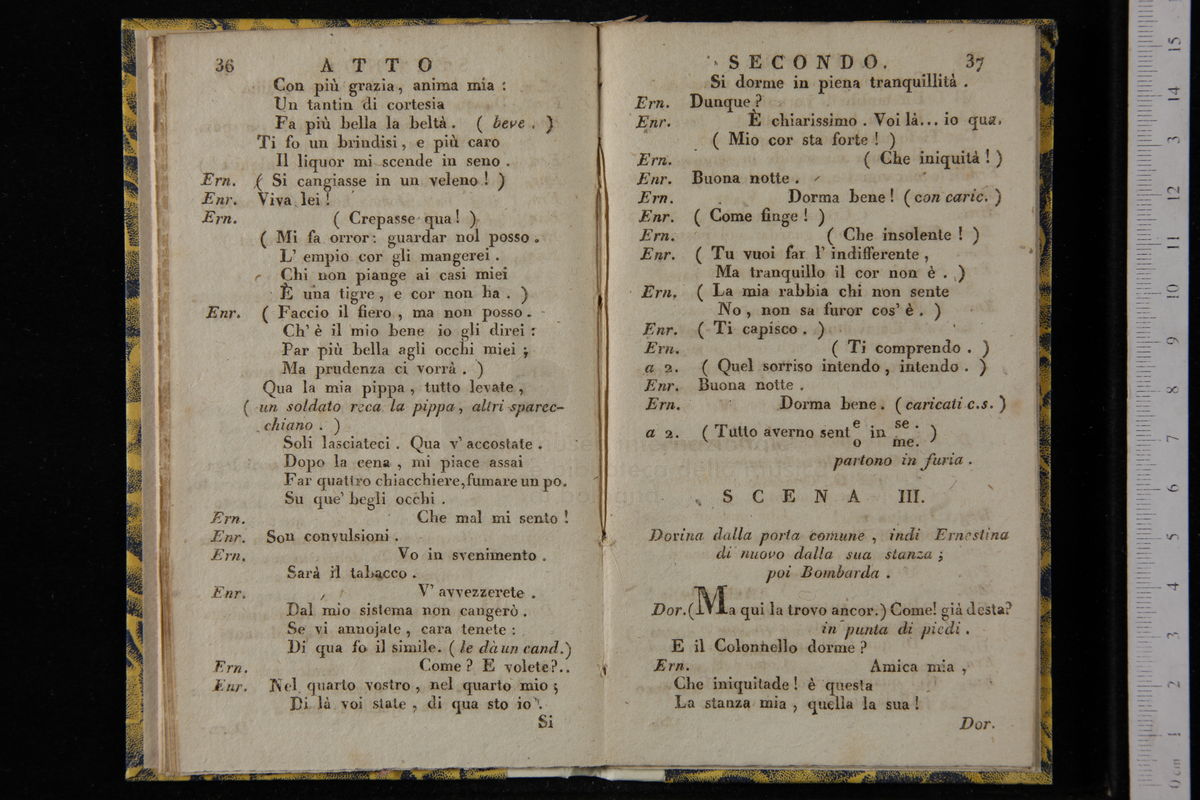 36 ATTO
Con più grazia, anima mia :
Un tantin di cortesia
Fa più bella la beltà. ( beve . )
Ti fo un brindisi, e più caro
Il liquor mi scende in seno .
Ern. ( Si cangiasse in un veleno ! )
Enr. Viva lei !
Ern. ( Crepasse qua ! )
( Mi fa orror: guardar nol posso .
L' empio cor gli mangerei .
Chi non piange ai casi miei
È una tigre, e cor non ha . )
Enr. ( Faccio il fiero , ma non posso .
Ch' è il mio bene io gli direi :
Par più bella agli occhi miei ;
Ma prudenza ci vorrà . )
Qua la mia pippa , tutto levate ,
( un soldato reca la pippa, altri sparec-
chiano . )
Soli lasciateci . Qua v' accostate .
Dopo la cena , mi piace assai
Far quattro chiacchiere, fumare un po.
Su que' begli occhi .
Ern. Che mal mi sento !
Enr. Son convulsioni .
Ern. Vo in svenimento .
Sarà il tabacco .
Enr. V' avvezzerete .
Dal mio sistema non cangerò .
Se vi annojate , cara tenete :
Di qua fo il simile. ( le dà un cand.)
Ern. Come ? E volete ?..
Enr. Nel quarto vostro , nel quarto mio ;
Di là voi state , di qua sto io .
Si
SECONDO. 37
Si dorme in piena tranquillità .
Ern. Dunque ?
Enr. È chiarissimo . Voi là... io qua.
( Mio cor sta forte ! )
Ern. ( Che iniquità ! )
Enr. Buona notte .
Ern. Dorma bene ! ( con caric. )
Enr. ( Come finge ! )
Ern. ( Che insolente ! )
Enr. ( Tu vuoi far l' indifferente ,
Ma tranquillo il cor non è . )
Ern. ( La mia rabbia chi non sente
No , non sa furor cos' è . )
Enr. ( Ti capisco . )
Ern. ( Ti comprendo . )
a 2. ( Quel sorriso intendo , intendo . )
Enr. Buona notte .
Ern. Dorma bene . ( caricati c.s. )
a 2. ( Tutto averno sent e in se .
o me. )
partono in furia .
SCENA III.
Dorina dalla porta comune , indi Ernestina
di nuovo dalla sua stanza ;
poi Bombarda .
Dor. (Ma qui la trovo ancor.) Come! già desta?
in punta di piedi .
E il Colonnello dorme ?
Ern. Amica mia ,
Che iniquitade ! è questa
La stanza mia , quella la sua !
Dor.